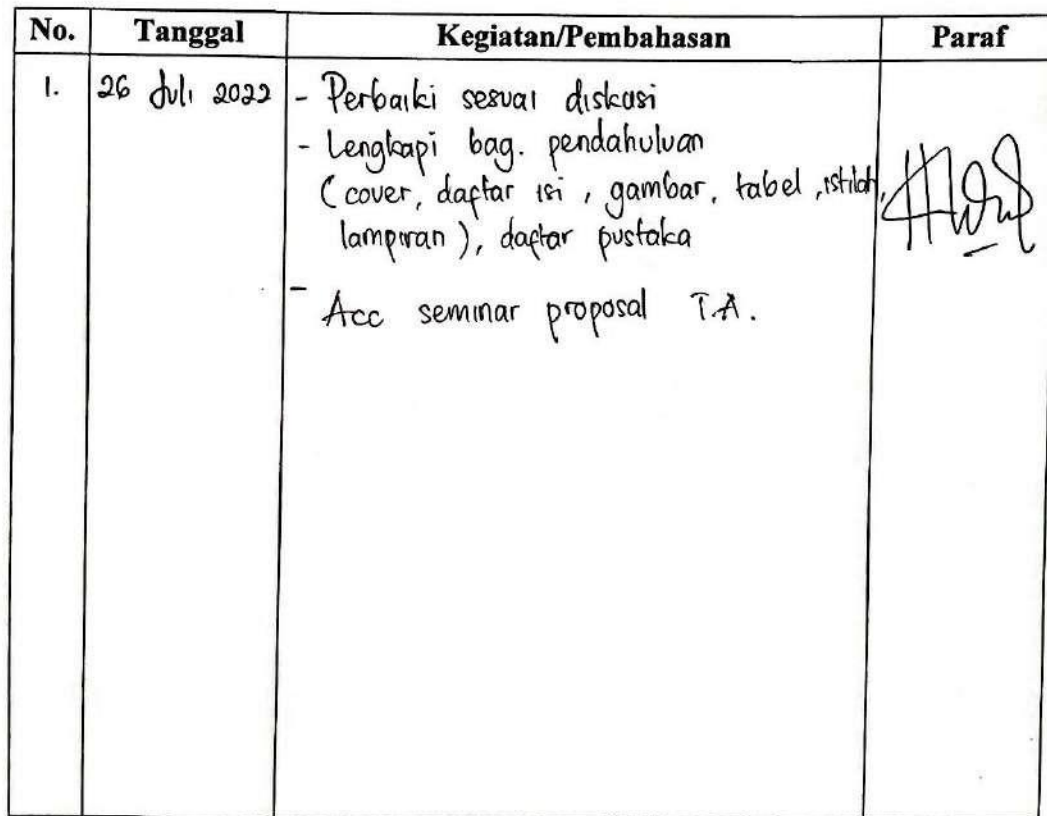 No. Tanggal Kegiatan/Pembahasan Paraf
1. 26 Juli 2022 - Perbaiki sesuai diskusi
- Lengkapi bag. pendahuluan
(cover, daftar isi, gambar, tabel, istilah,
lampiran), daftar pustaka
- Acc seminar proposal T.A.